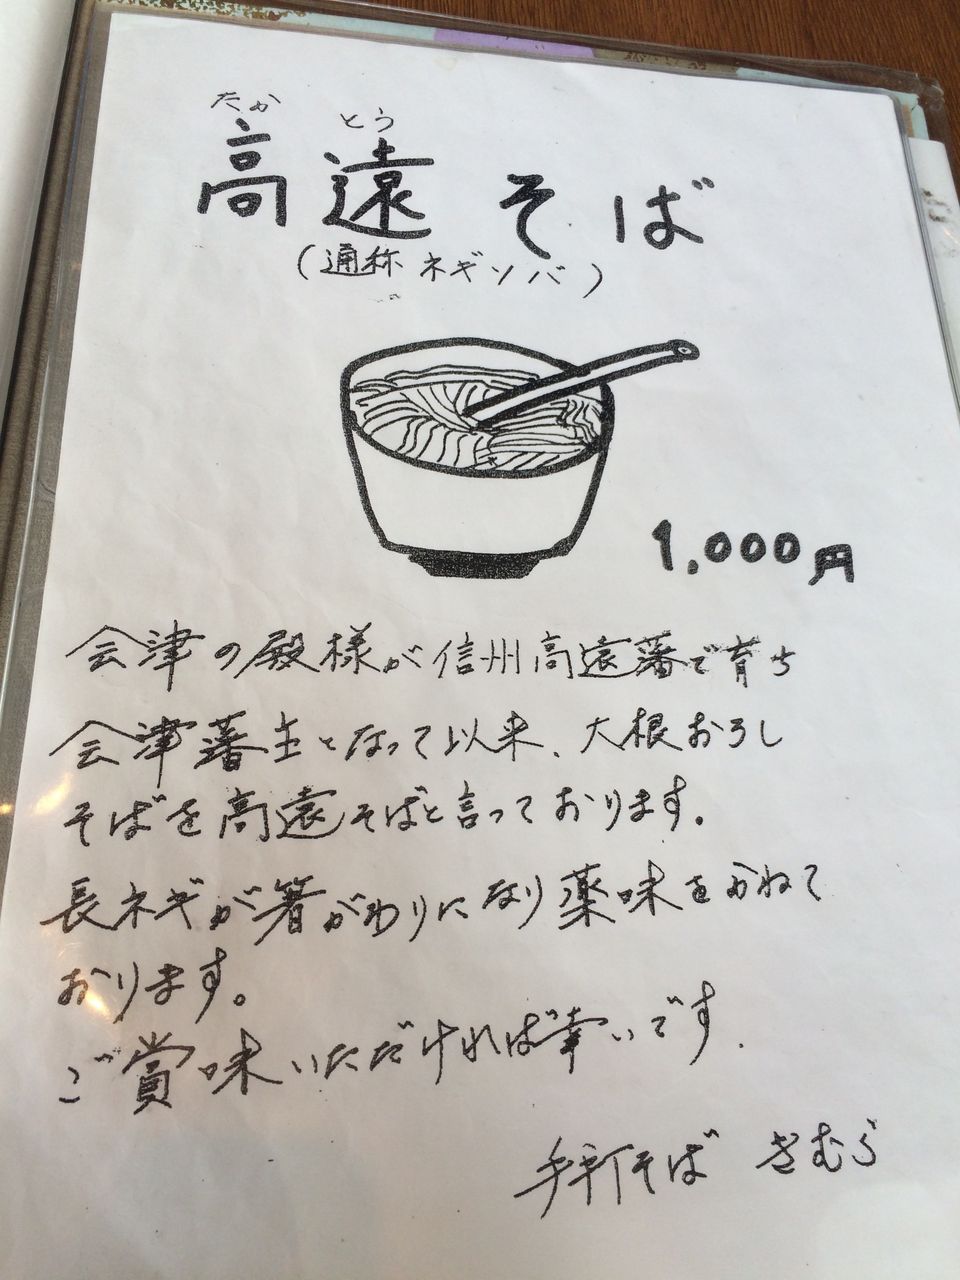 たか とう
高遠そば
(通称 ネギソバ)
1,000円
会津の殿様が信州高遠藩で育ち
会津藩主となって以来、大根おろし
そばを高遠そばと言っております。
長ネギが箸がわりになり薬味をかねて
おります。
ご賞味いただければ幸いです.
手打そば きむら